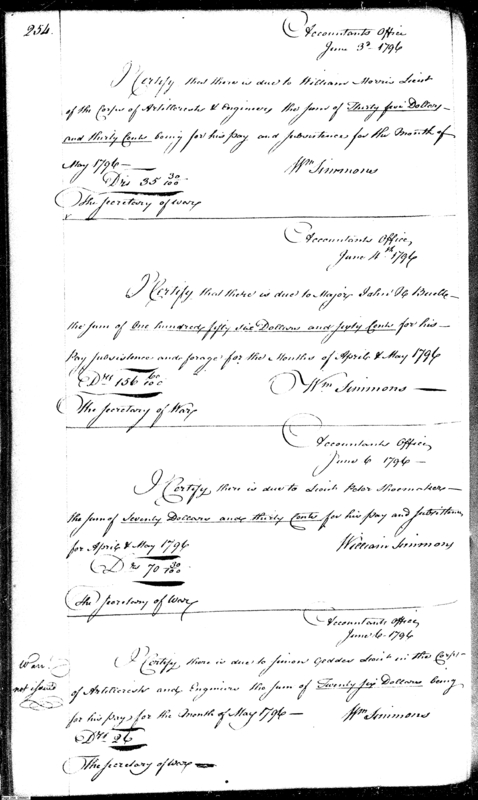 254.
Accountants Office
June 3d 1796
I Certify that there is due to William Morris Lieut
of the Corps of Artillerists & Engineers the sum of Thirty five Dollars
and thirty Cents being for his pay and subsistence for the Month of
May 1796 —
Wm Simmons
Drs 35 30/100
The Secretary of War
Accountants Office,
June 4th 1796
I Certify that there is due to Major John H Buell
the sum of One hundred fifty six Dollars and sixty Cents for his
Pay subsistence and forage for the Months of April & May 1796
Drs 156 60/100
Wm Simmons —
The Secretary of War
Accountants Office,
June 6 1796 —
I Certify there is due to Lieut Peter Shoemaker —
the sum of Seventy Dollars and thirty Cents for his pay and Subsistence
for April & May 1796
William Simmons
Drs 70 30/100
The Secretary of War
Accountants Office,
June 6. 1796
Warr.
not issued
I Certify there is due to Simon Geddes Lieut in the Corps
of Artillerists and Engineers the sum of Twenty six Dollars being
for his pay for the Month of May 1796 —
Wm Simmons
Drs 26
The Secretary of War —